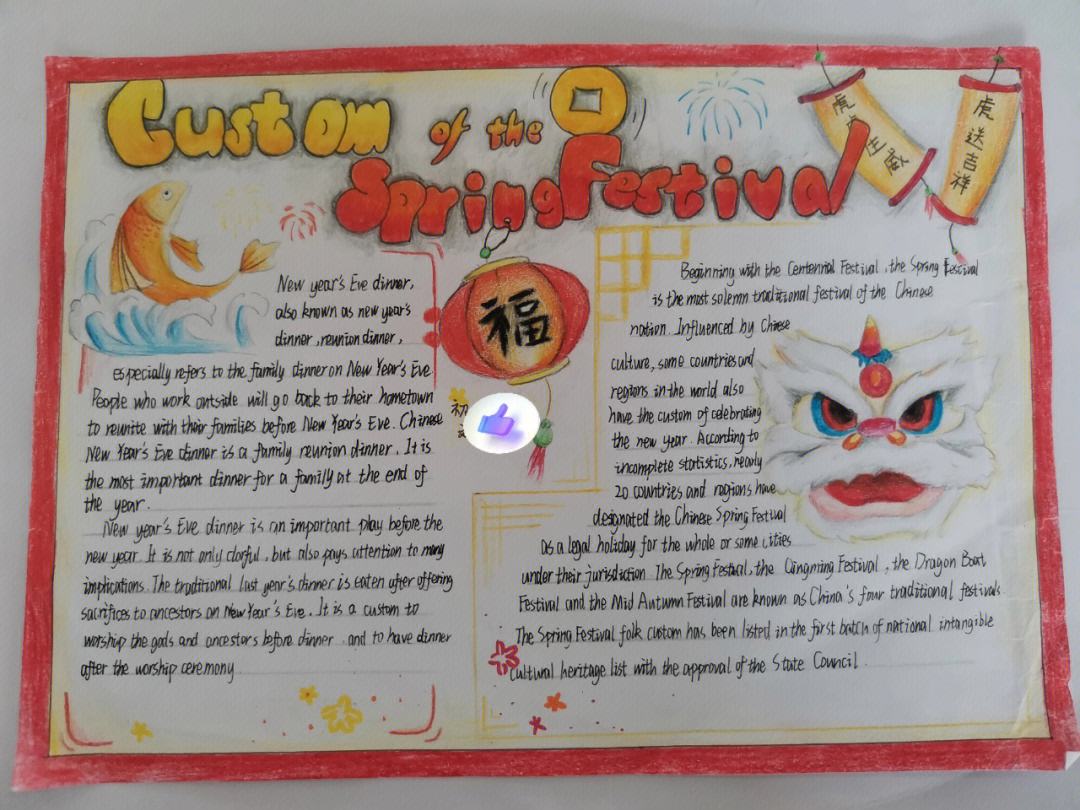 Custom of the
Spring Festival
虎
生威
虎送吉祥
New year's Eve dinner,
also known as new year's
dinner, reunion dinner,
especially refers to the family dinner on New Year's Eve.
People who work outside will go back to their hometown
to reunite with their families before New Year's Eve. Chinese
New Year's Eve dinner is a family reunion dinner. It is
the most important dinner for a family at the end of
the year.
New year's Eve dinner is an important play before the
new year. It is not only clorful, but also pays attention to many
implications. The traditional last year's dinner is eaten after offering
sacrifices to ancestors on New Year's Eve. It is a custom to
worship the gods and ancestors before dinner and to have dinner
after the worship ceremony
福
初
Beginning with the Centennial Festival, the Spring Festival
is the most solemn traditional festival of the Chinese
nation. Influenced by Chinese
culture, some countries and
regions in the world also
have the custom of celebrating
the new year. According to
incomplete statistics, nearly
20 countries and regions have
designated the Chinese Spring Festival
as a legal holiday for the whole or some cities
under their jurisdiction. The Spring Festival, the Qingming Festival, the Dragon Boat
Festival and the Mid Autumn Festival are known as China's four traditional festivals.
The Spring Festival folk custom has been listed in the first batch of national intangible
cultural heritage list with the approval of the State Council.